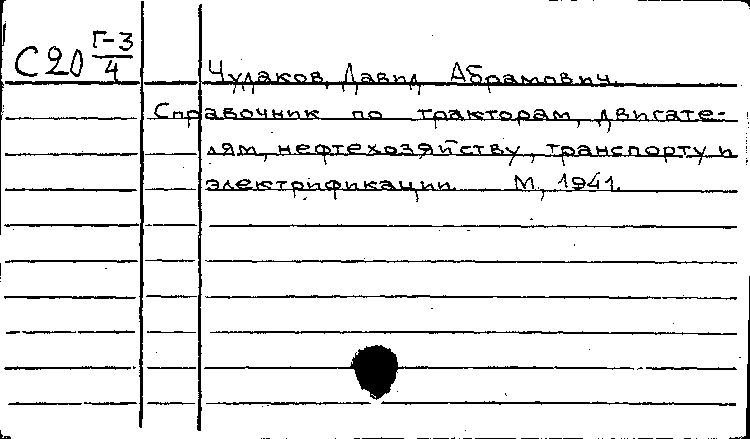 С20 Г-3/4
Чудаков, Давид Абрамович.
Справочник по тракторам, двигате-
лям, нефтехозяйству, транспорту и
электрификации. М., 1941.